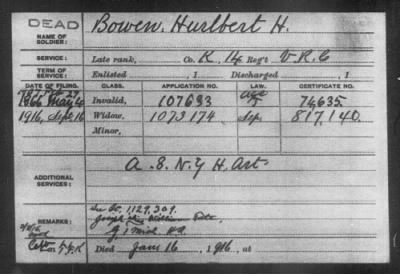 DEAD
NAME OF SOLDIER: Bowen, Hurlbert H.
SERVICE: Late rank, Co. K, 14 Reg't V.R.C
TERM OF SERVICE: Enlisted , 1 Discharged , 1
DATE OF FILING. CLASS. APPLICATION NO. LAW. CERTIFICATE NO.
1866 May 4 Invalid, 107693 74,635
1916, Sept 16 Widow, 1073174 Sep. 817,140.
Minor,
ADDITIONAL SERVICES: A. 8. N.Y H. Art
REMARKS: 1,129,309.
Joseph William
G 1 Mich H.A.
Died Jan 16, 1916,